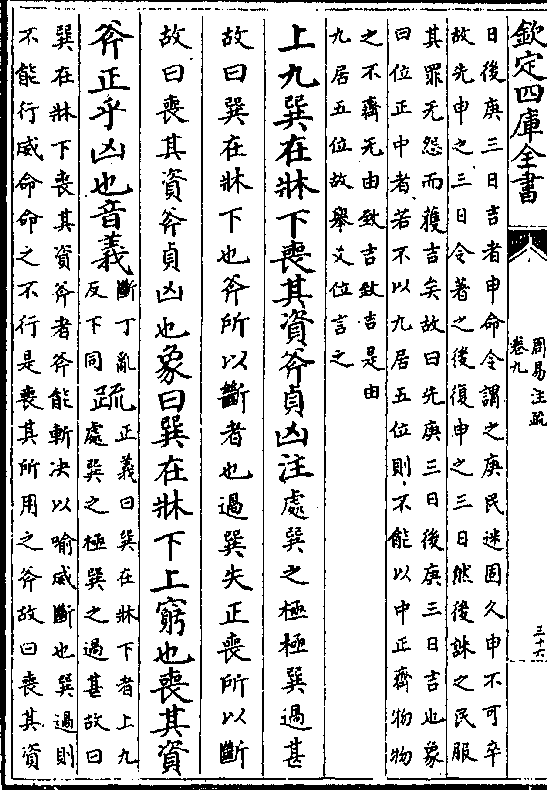 欽定四庫全書
周易注疏
卷九
三十六
日後庚三日吉者申命令謂之庚民迷固久申不可卒
故先申之三日令著之後復申之三日然後誅之民服
其罪无怨而獲吉矣故曰先庚三日後庚三日吉也象
曰位正中者若不以九居五位則不能以中正齊物物
之不齊无由致吉致吉是由
九居五位故舉爻位言之
上九巽在牀下喪其資斧貞凶注處巽之極極巽過甚
故曰巽在牀下也斧所以斷者也過巽失正喪所以斷
故曰喪其資斧貞凶也象曰巽在牀下上窮也喪其資
斧正乎凶也音義斷丁亂
反下同疏正義曰巽在牀下者上九
處巽之極巽之過甚故曰
巽在牀下喪其資斧者斧能斬決以喻威斷也巽過則
不能行威命命之不行是喪其所用之斧故曰喪其資